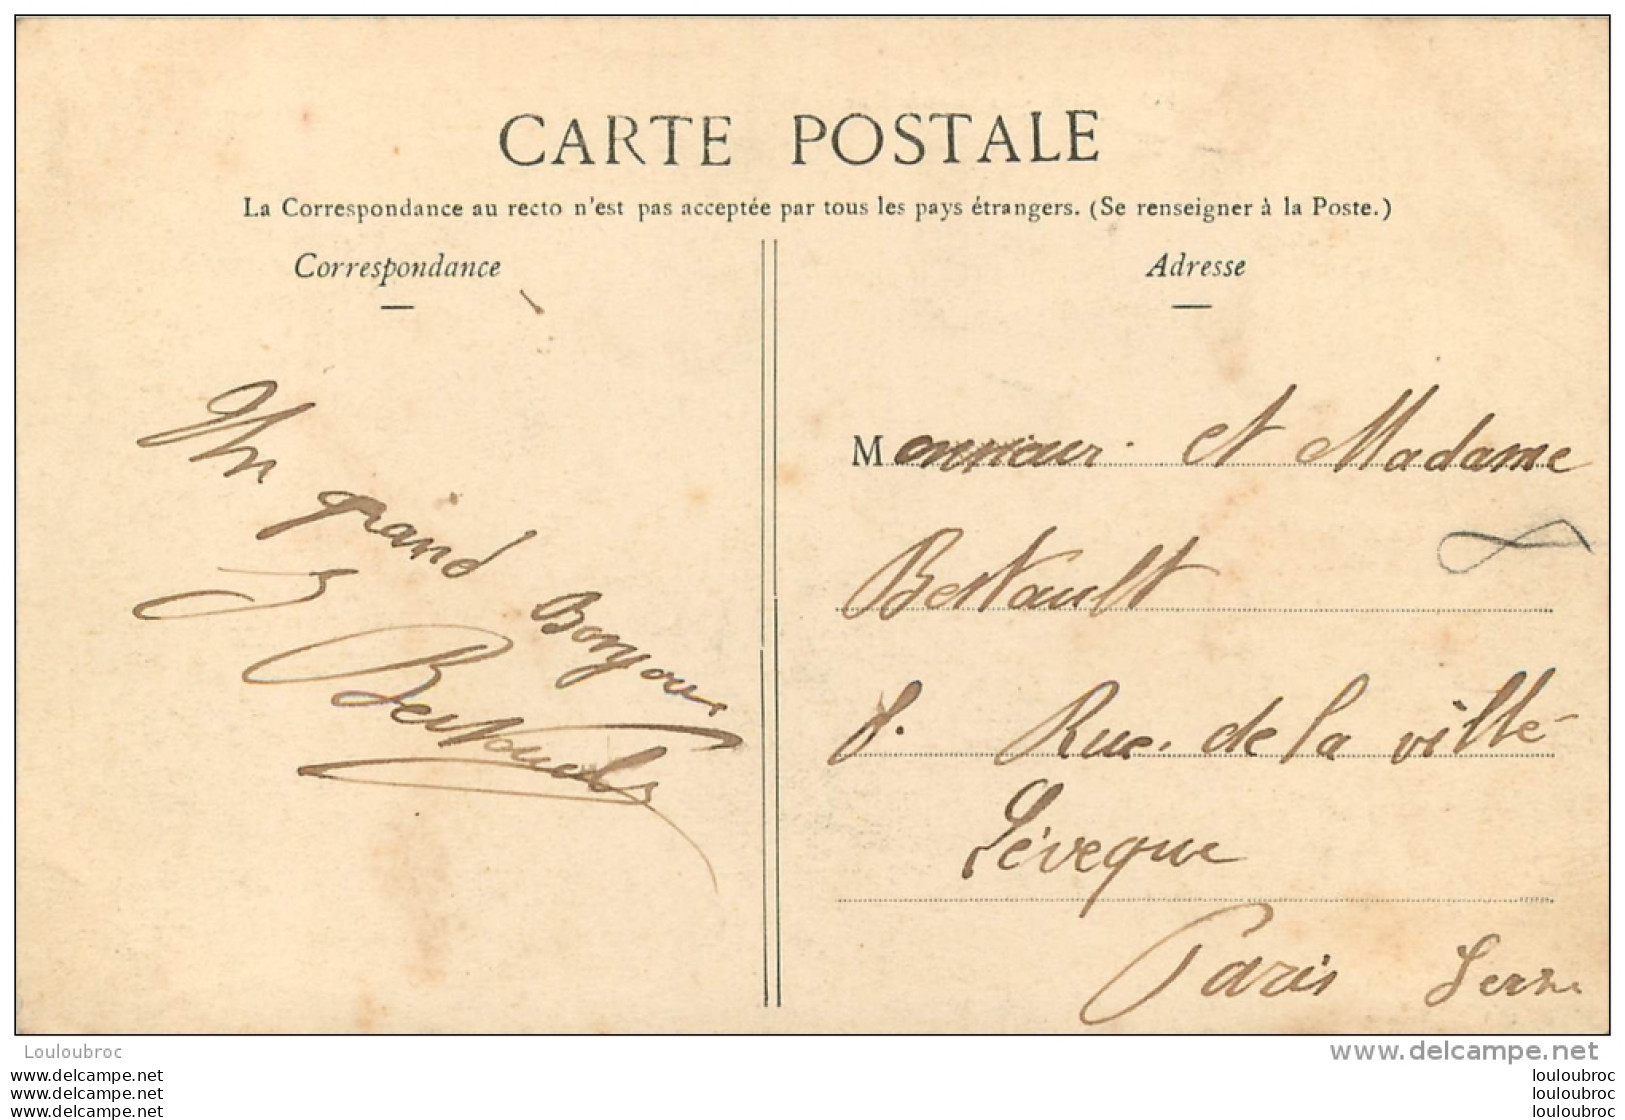 CARTE POSTALE
La Correspondance au recto n'est pas acceptée par tous les pays étrangers. (Se renseigner à la Poste.)
Correspondance
Un grand
Bonjour
Adresse
Monsieur et Madame
Bertault
8. Rue de la ville
Lévèque
Paris
Louloubroc
www.delcampe.net
www.delcampe.net
www.delcampe.net
www.delcampe.net
louloubroc
louloubroc
louloubroc